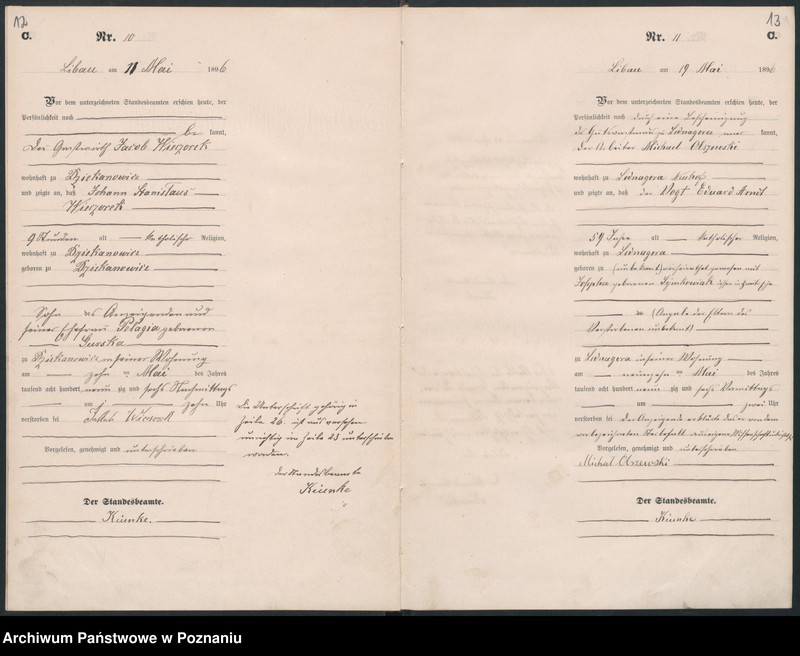 12
C.
Nr. 10
Libau am 11 Mai 1896
Vor dem unterzeichneten Standesbeamten erschien heute, der
Persönlichkeit nach
be kannt,
Der Gastwirth Jacob Wieczorek
wohnhaft zu Dziekanowice
und zeigte an, daß Johann Stanislaus
Wieczorek
9 Stunden alt katholischer Religion,
wohnhaft zu Dziekanowice
geboren zu Dziekanowice
Sohn des Anzeigenden und
seiner Ehefrau Pelagia geborenen
Guska
zu Dziekanowice in seiner Wohnung
am zehn ten Mai des Jahres
tausend acht hundert neun zig und sechs Nachmittags
um zehn Uhr
verstorben sei
Vorgelesen, genehmigt und unterschrieben
Der Standesbeamte.
Kienke.
Die Unterschrift gehörig in
Zeile 26. ist aus Versehen
unrichtig in Zeile 23 unterschrieben
worden.
Der Standesbeamte
Kienke
13
C.
Nr. 11
Libau am 19 Mai 1896
Vor dem unterzeichneten Standesbeamten erschien heute, der
Persönlichkeit nach durch eine Bescheinigung
kannt,
der Arbeiter Michael Olszewski
wohnhaft zu Lednagora
und zeigte an, daß der Vogt Eduard Arndt
54 Jahre alt katholischer Religion,
wohnhaft zu Lednagora
geboren zu (unbekannt) verheirathet gewesen mit
Josepha geborenen Szymkowiak
(Angabe der Eltern des
Verstorbenen unbekannt)
zu Lednagora in seiner Wohnung
am neunzehn ten Mai des Jahres
tausend acht hundert neun zig und sechs Vormittags
um zwei Uhr
verstorben sei Der Anzeigende erklärte daß er von dem
Sterbefall aus eigener Wissenschaft
Vorgelesen, genehmigt und unterschrieben
Michał Olszewski
Der Standesbeamte.
Kienke
Archiwum Państwowe w Poznaniu